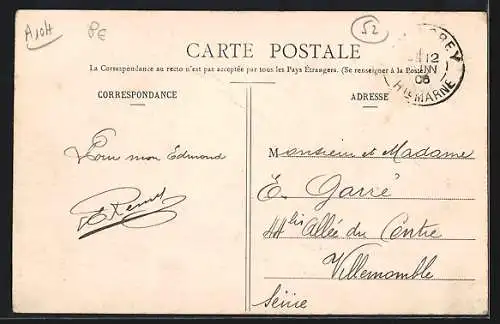 A104
8€
52
CARTE POSTALE
La Correspondance au recto n'est pas acceptée par tous les Pays Étrangers. (Se renseigner à la Poste)
CORRESPONDANCE
ADRESSE
OREY
12
06
Hte MARNE
Pour mon Edmond
E Remy
Monsieur et Madame
E. Garré
44 bis Allée du Centre
Villemomble
Seine